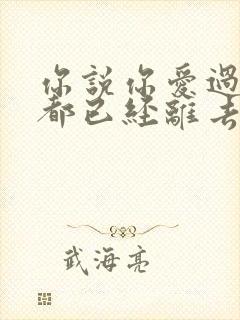 你說你愛過
都已經離去
武海亮